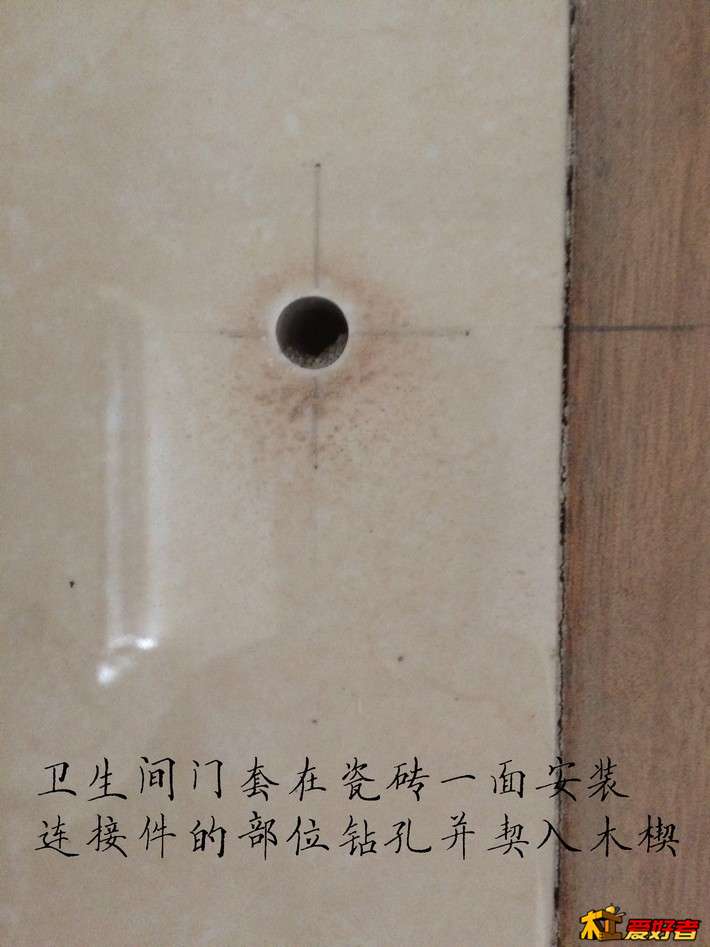 卫生间门套在瓷砖一面安装
连接件的部位钻孔并契入木楔
木工爱好者